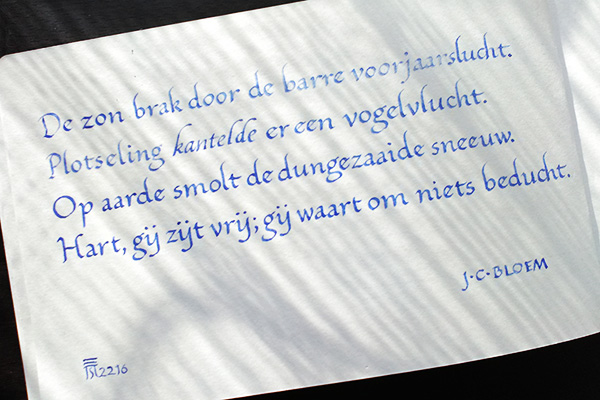 De zon brak door de barre voorjaarslucht.
Plotseling kantelde er een vogelvlucht.
Op aarde smolt de dungezaaide sneeuw.
Hart, gij zijt vrij; gij waart om niets beducht.
J·C·BLOEM
2216